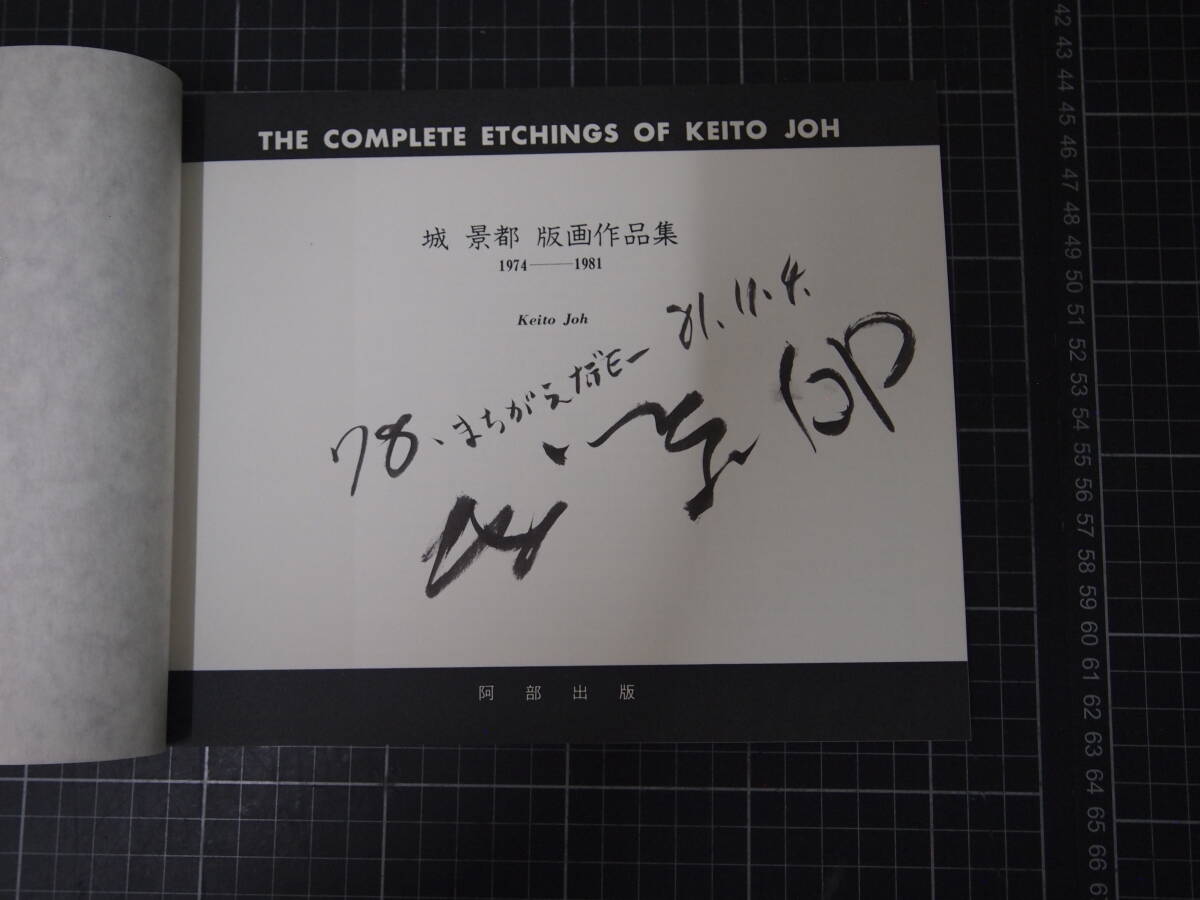 THE COMPLETE ETCHINGS OF KEITO JOH
城 景都 版画作品集
1974——1981
Keito Joh
'78、まちがえだモー 81.11.4.
阿部出版
42
43
44
45
46
47
48
49
50
51
52
53
54
55
56
57
58
59
60
61
62
63
64
65
66